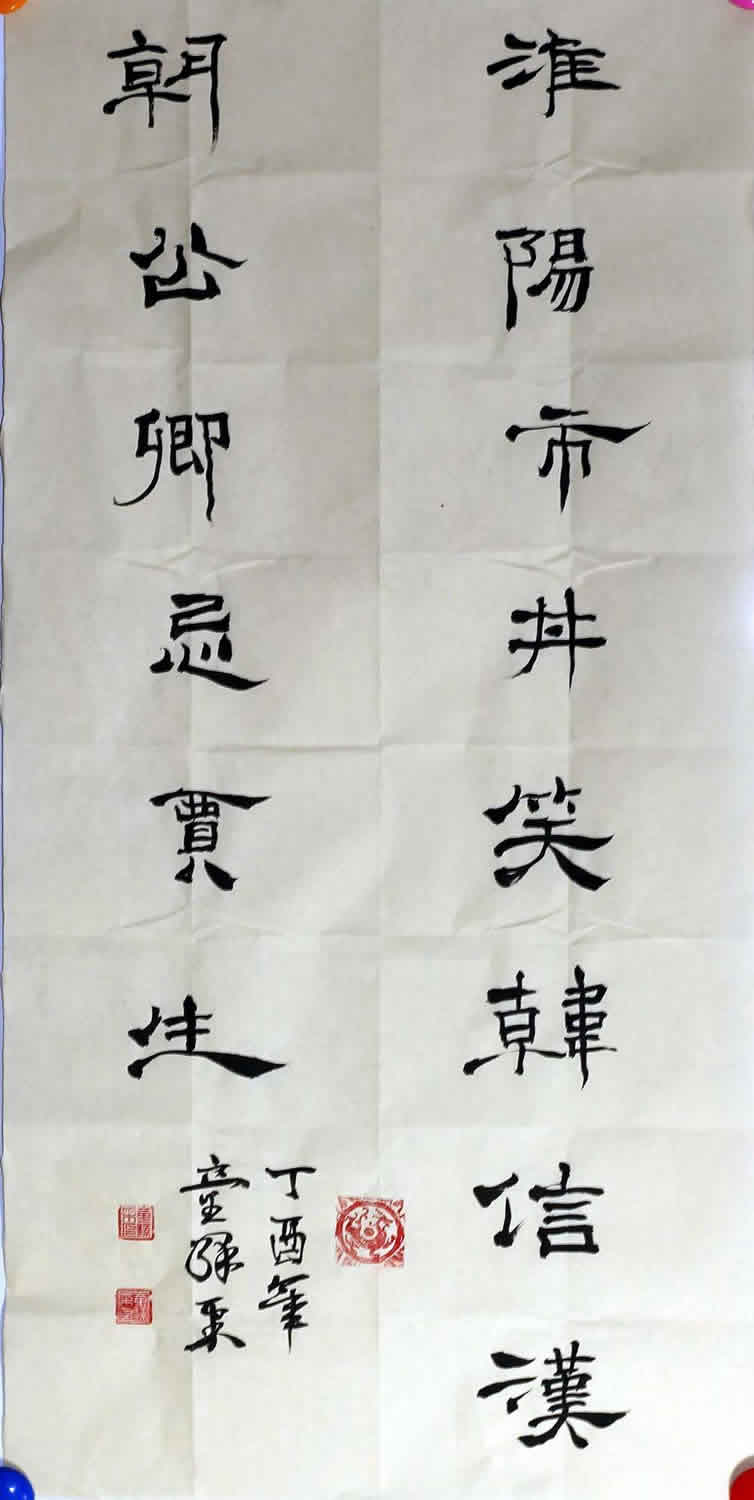 淮陽市井笑韓信漢
朝公卿忌賈生
丁酉年
童